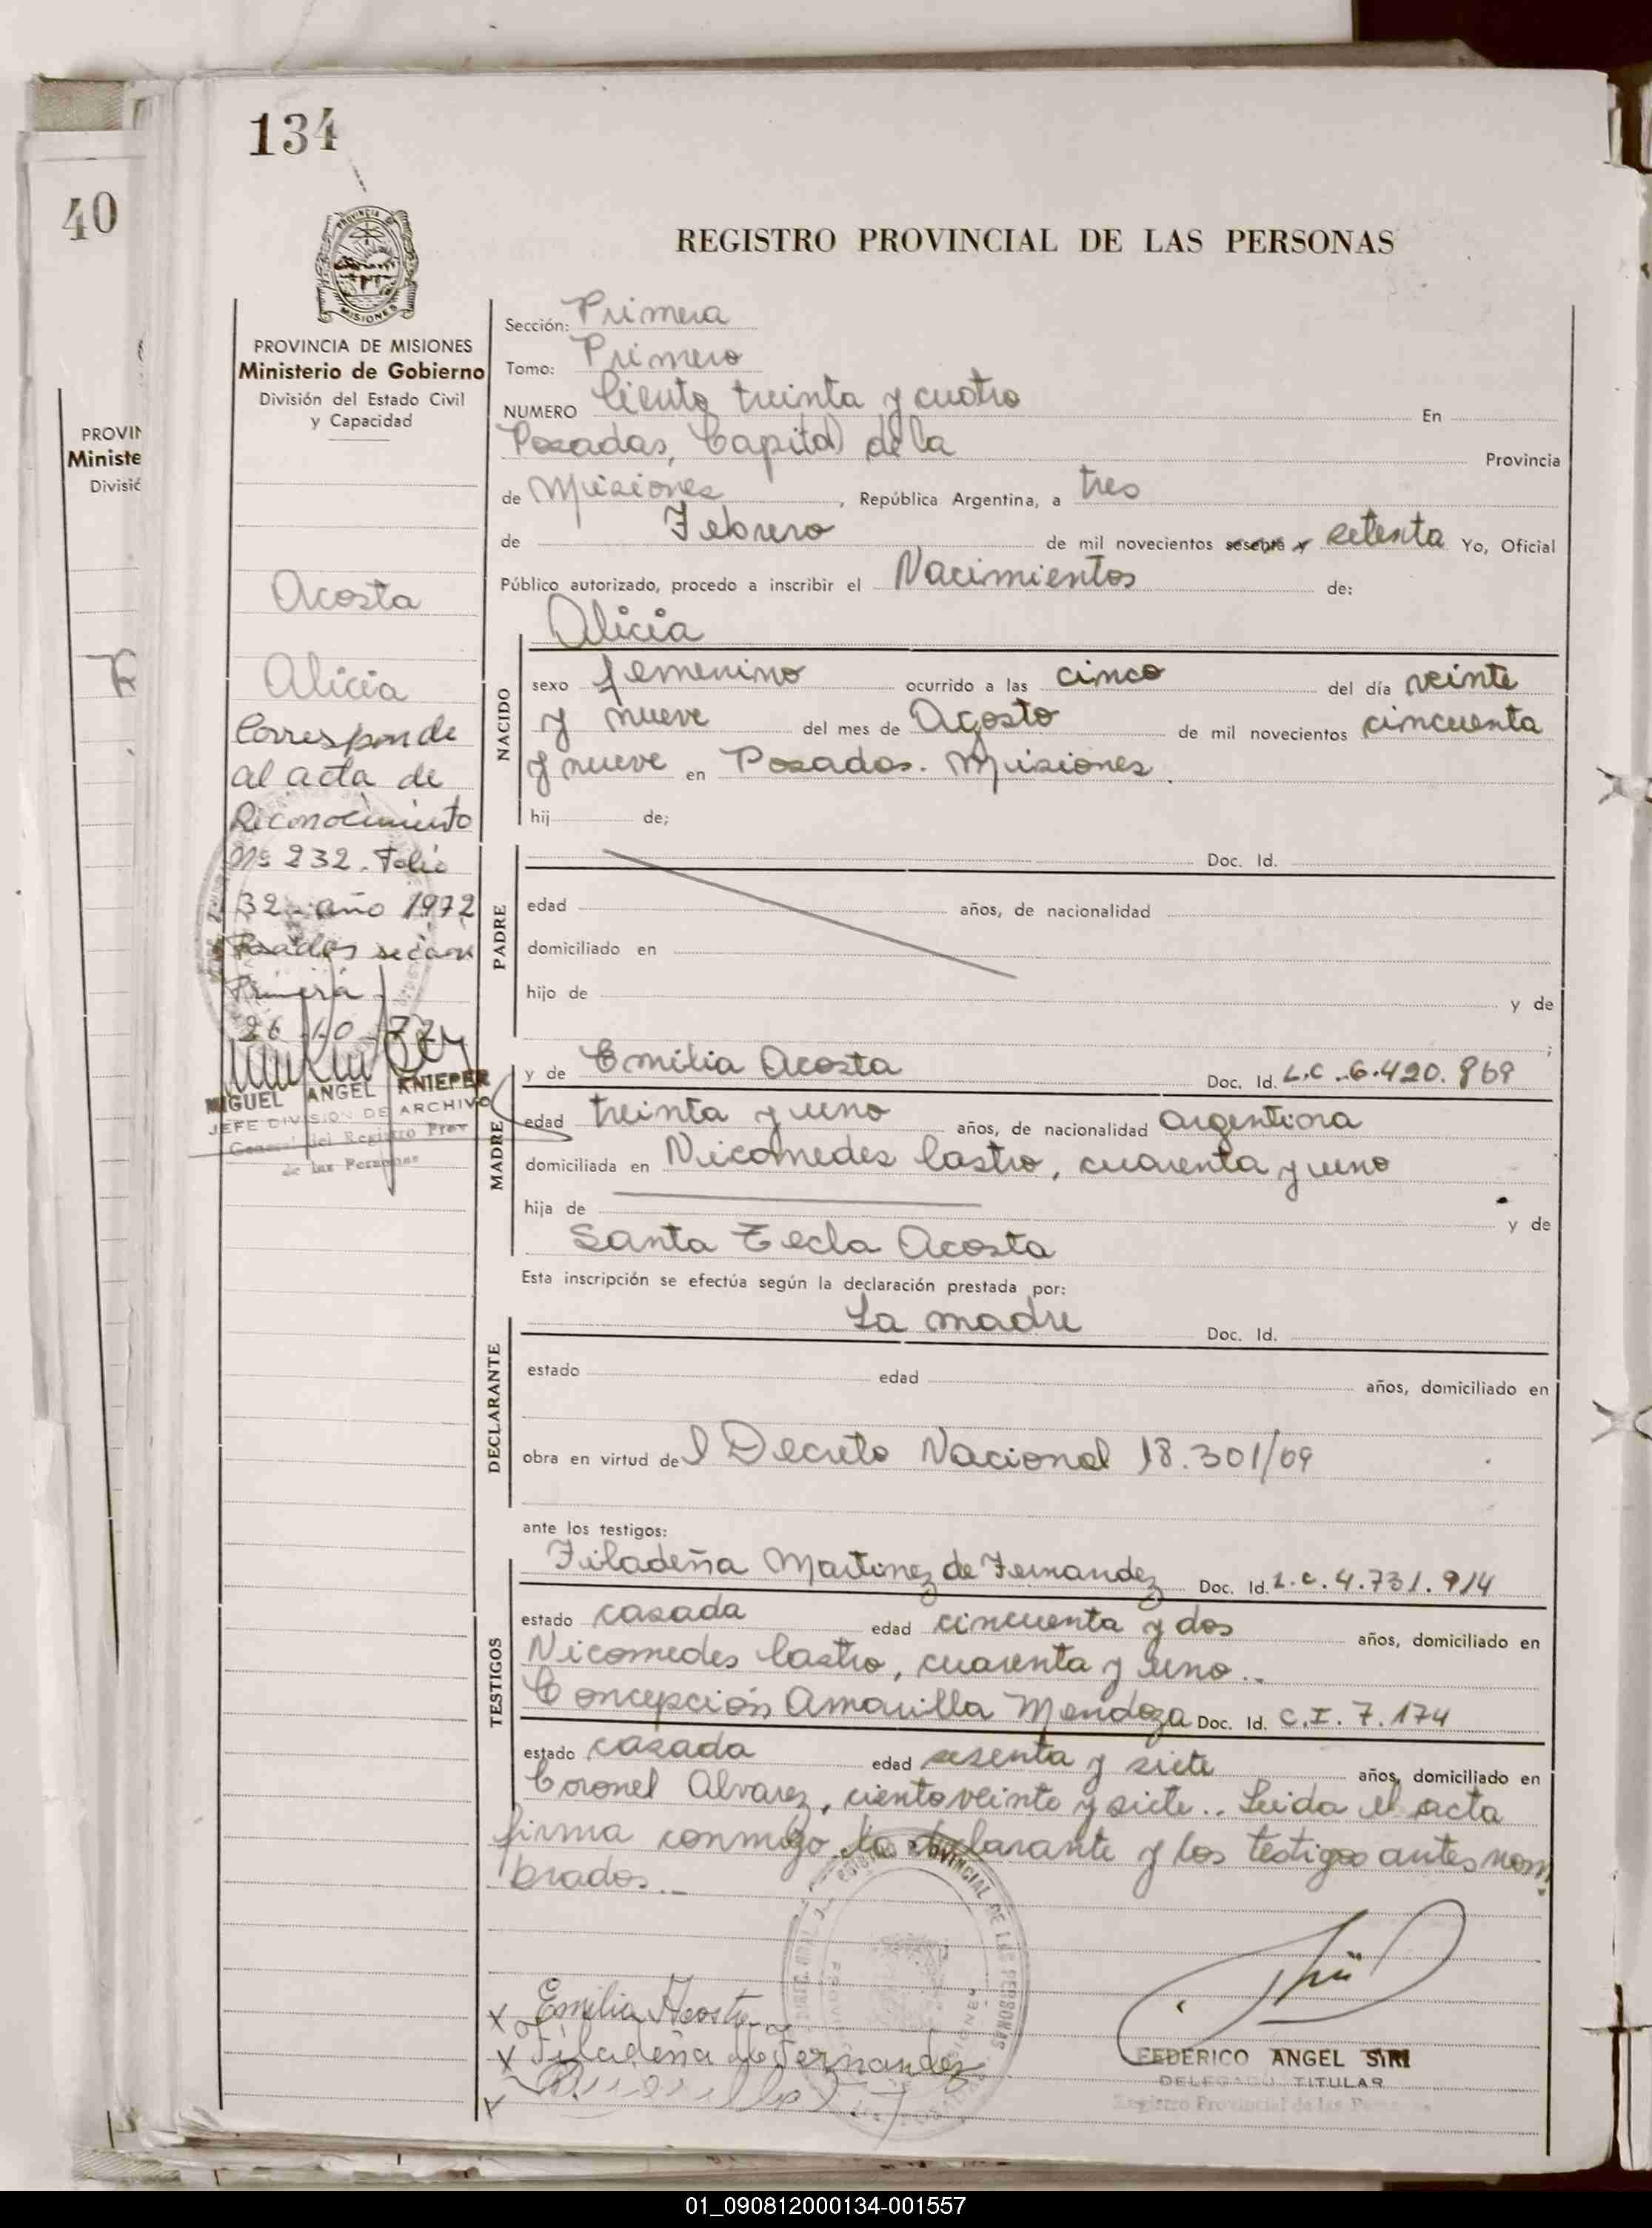 134
40
REGISTRO PROVINCIAL DE LAS PERSONAS
PROVINCIA DE MISIONES
Ministerio de Gobierno
División del Estado Civil
y Capacidad
PROVIN
Ministe
Divisió
Acosta
Alicia
Corresponde
al acta de
Reconocimiento
Nº 232. Folio
32 - año 1972
Posadas sección
Primera
26 - 10 - 72
MIGUEL ANGEL KNIEPER
JEFE DIVISION DE ARCHIVO
General del Registro Prov
de las Personas
Sección: Primera
Tomo: Primero
NUMERO Ciento treinta y cuatro En
Posadas, Capital de la Provincia
de Misiones, República Argentina, a tres
de Febrero de mil novecientos sesenta y setenta Yo, Oficial
Público autorizado, procedo a inscribir el Nacimientos de:
Alicia
NACIDO
sexo femenino ocurrido a las cinco del día veinte
y nueve del mes de Agosto de mil novecientos cincuenta
y nueve en Posadas. Misiones.
hij de;
PADRE
Doc. Id.
edad años, de nacionalidad
domiciliado en
hijo de y de
MADRE
y de Emilia Acosta Doc. Id. L.C. 6.420.869
edad treinta y uno años, de nacionalidad argentina
domiciliada en Nicomedes Castro, cuarenta y uno
hija de y de
Santa Tecla Acosta
Esta inscripción se efectúa según la declaración prestada por:
DECLARANTE
La madre Doc. Id.
estado edad años, domiciliado en
obra en virtud del Decreto Nacional 18.301/69
ante los testigos:
TESTIGOS
Filadeña Martinez de Fernandez Doc. Id. L.C. 4.731.914
estado casada edad cincuenta y dos años, domiciliado en
Nicomedes Castro, cuarenta y uno..
Concepción Amarilla Mendoza Doc. Id. C.I. 7.174
estado casada edad sesenta y siete años, domiciliado en
Coronel Alvarez, ciento veinte y siete.. Leida el acta
firma conmigo la declarante y los testigos antes nom
brados..
Emilia Acosta
Filadeña de Fernandez
FEDERICO ANGEL SIRI
DELEGADO TITULAR
Registro Provincial de las Personas
01_090812000134-001557